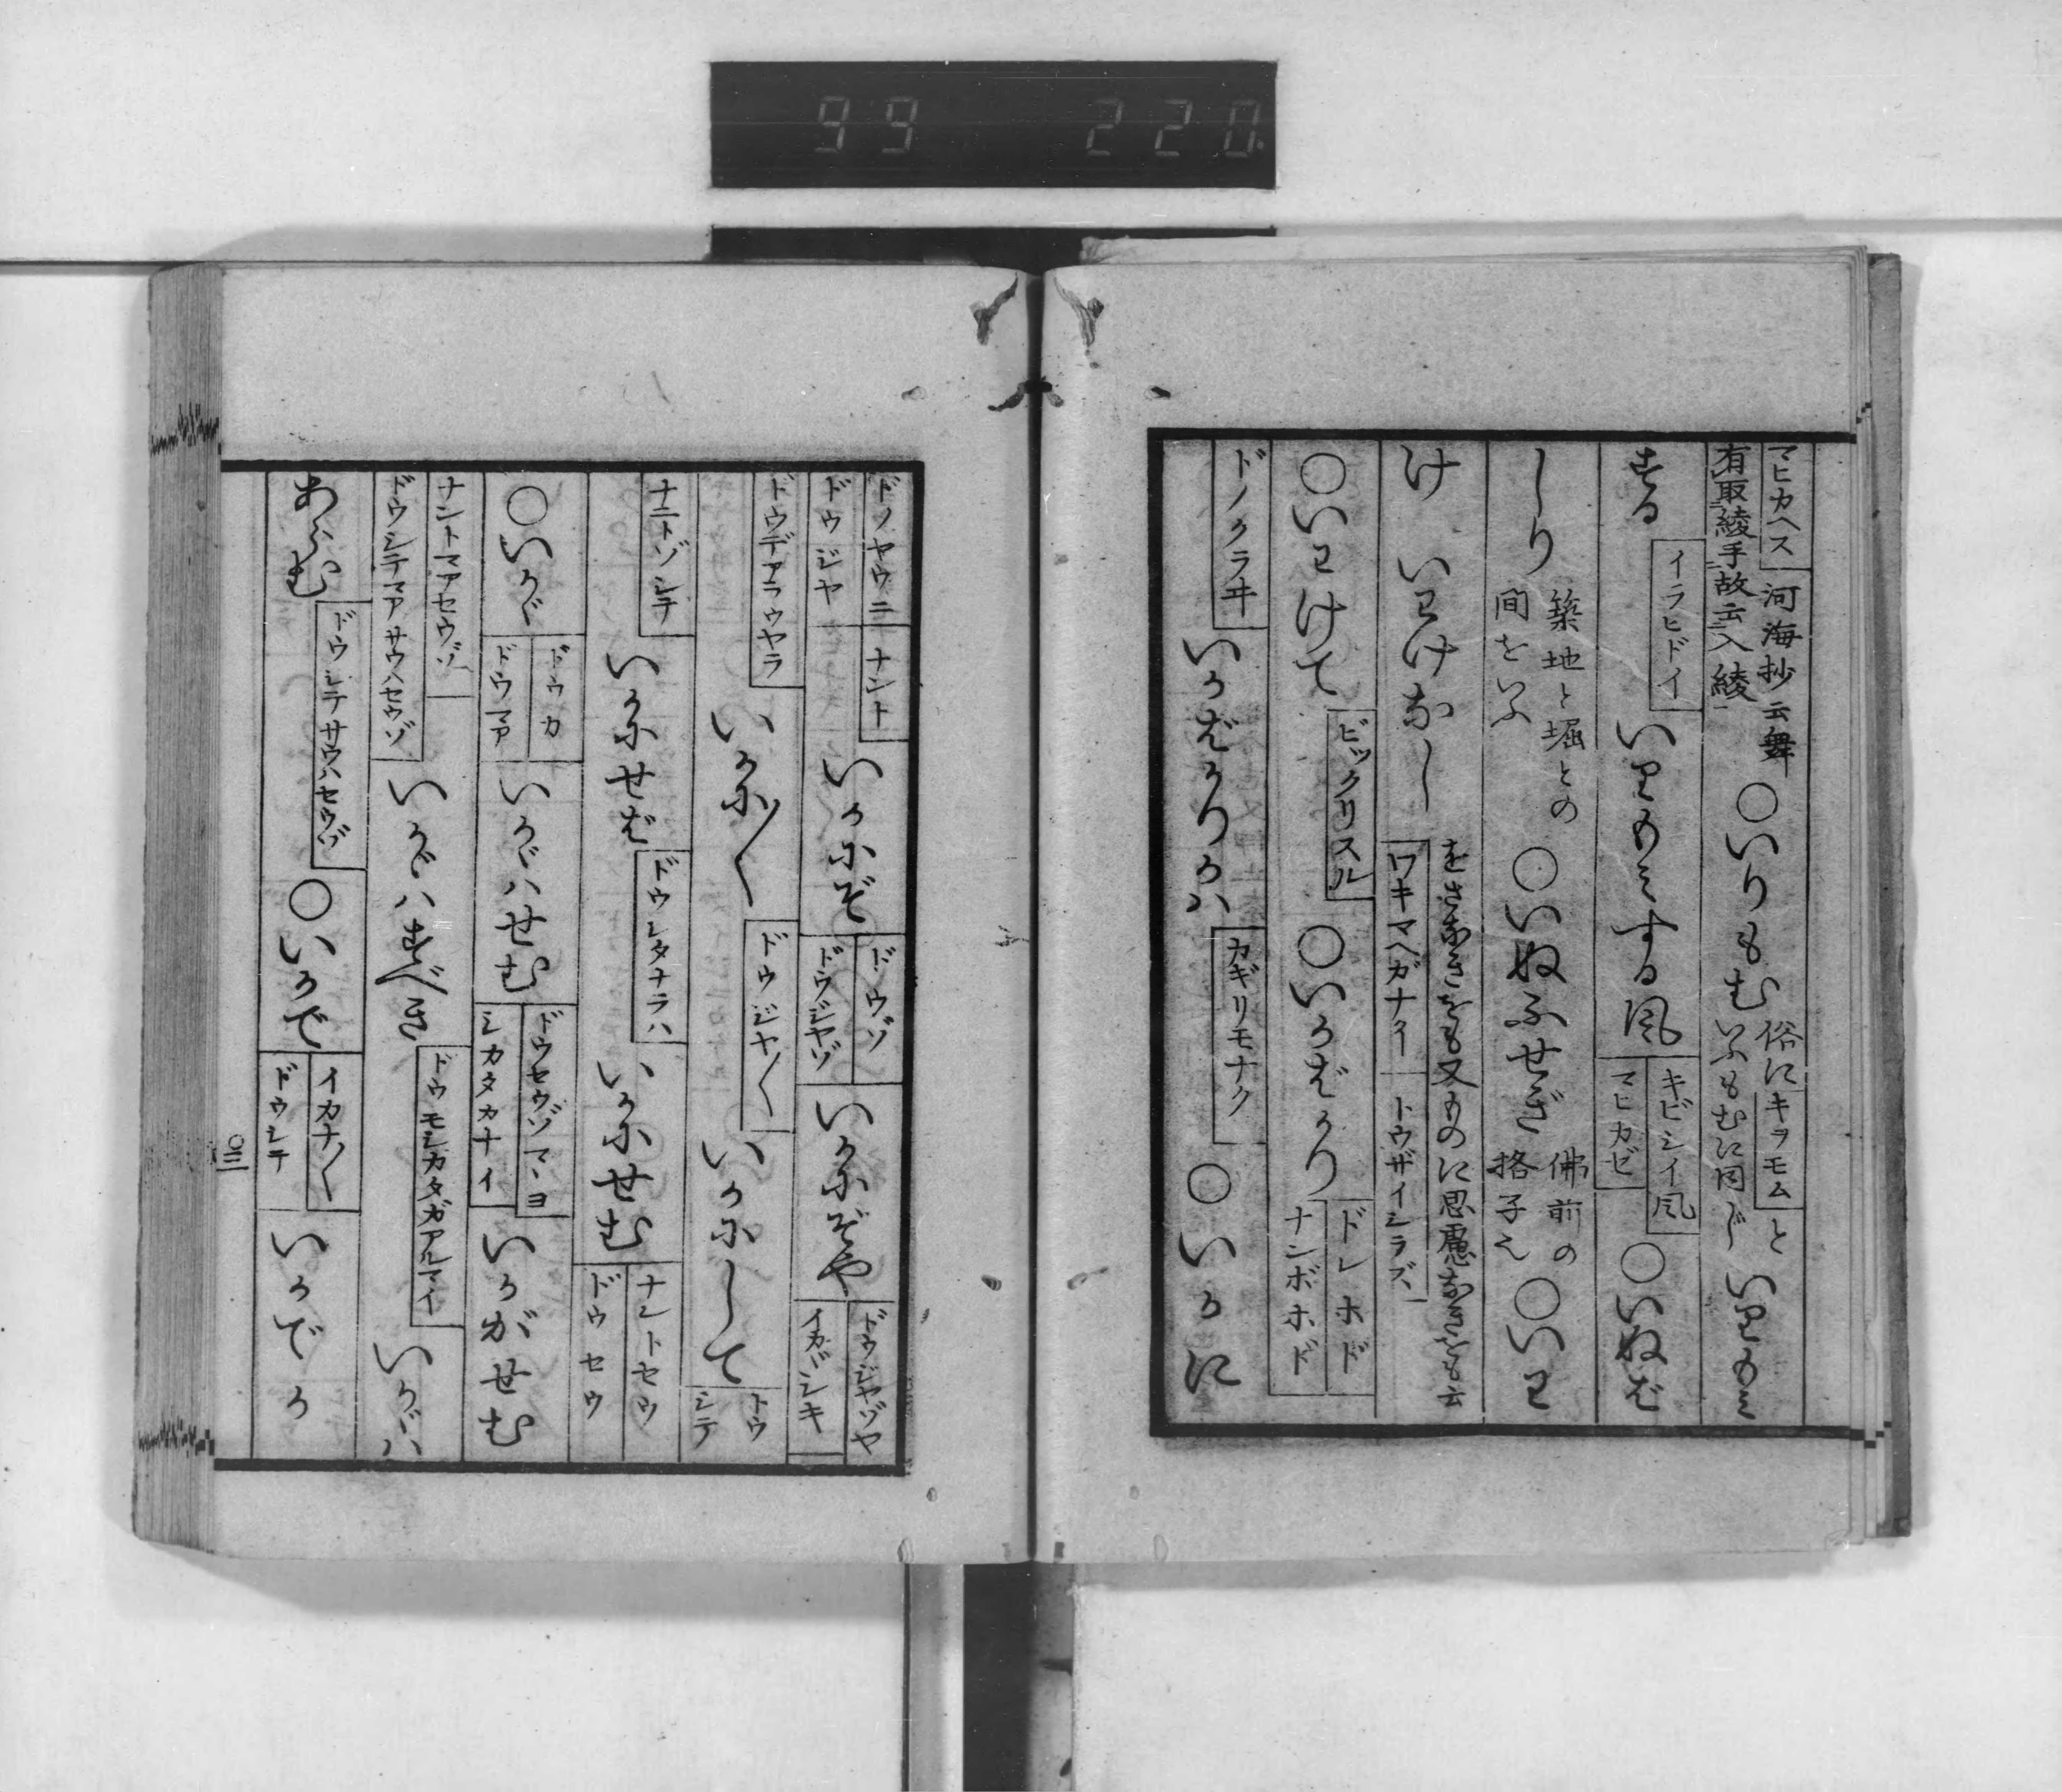 99 220
マヒカヘス 河海抄云舞
有取綾手故云入綾 ○いりもむ 俗にキヲモムと
いふももむに同じ いりもみ
する イラヒドイ いりもみする風 キビシイ風
マヒカゼ ○いぬば
しり 築地と堀との
間をいふ ○いぬふせぎ 佛前の
格子也 ○いわ
け いわけなし をさなきをも又ものに思慮なきをも云
ワキマヘガナイ トウザイシラズ
○いわけて ビックリスル ○いかばかり ドレホド
ナンボホド
ドノクラヰ いかばかりかハ カギリモナク ○いかに
ドノヤウニ ナント
ドウジヤ いかにぞ ドウゾ
ドウジヤゾ いかにぞや ドウジヤゾヤ
イカヾシキ
ドウデアラウヤラ いかに〳〵 ドウジヤ〳〵 いかにして ドウ
シテ
ナニトゾシテ いかにせば ドウシタナラハ いかにせむ ナントセウ
ドウセウ
○いかゞ ドウカ
ドウマア いかゞハせむ ドウセウゾマヽヨ
シカタカナイ いかがせむ
ナントマアセウゾ
ドウシテマアサウハセウゾ いかゞハすべき ドウモシカタガアルマイ いかゞハ
あらむ ドウシテサウハセウゾ ○いかで イカナ〳〵
ドウシテ いかでか
○三